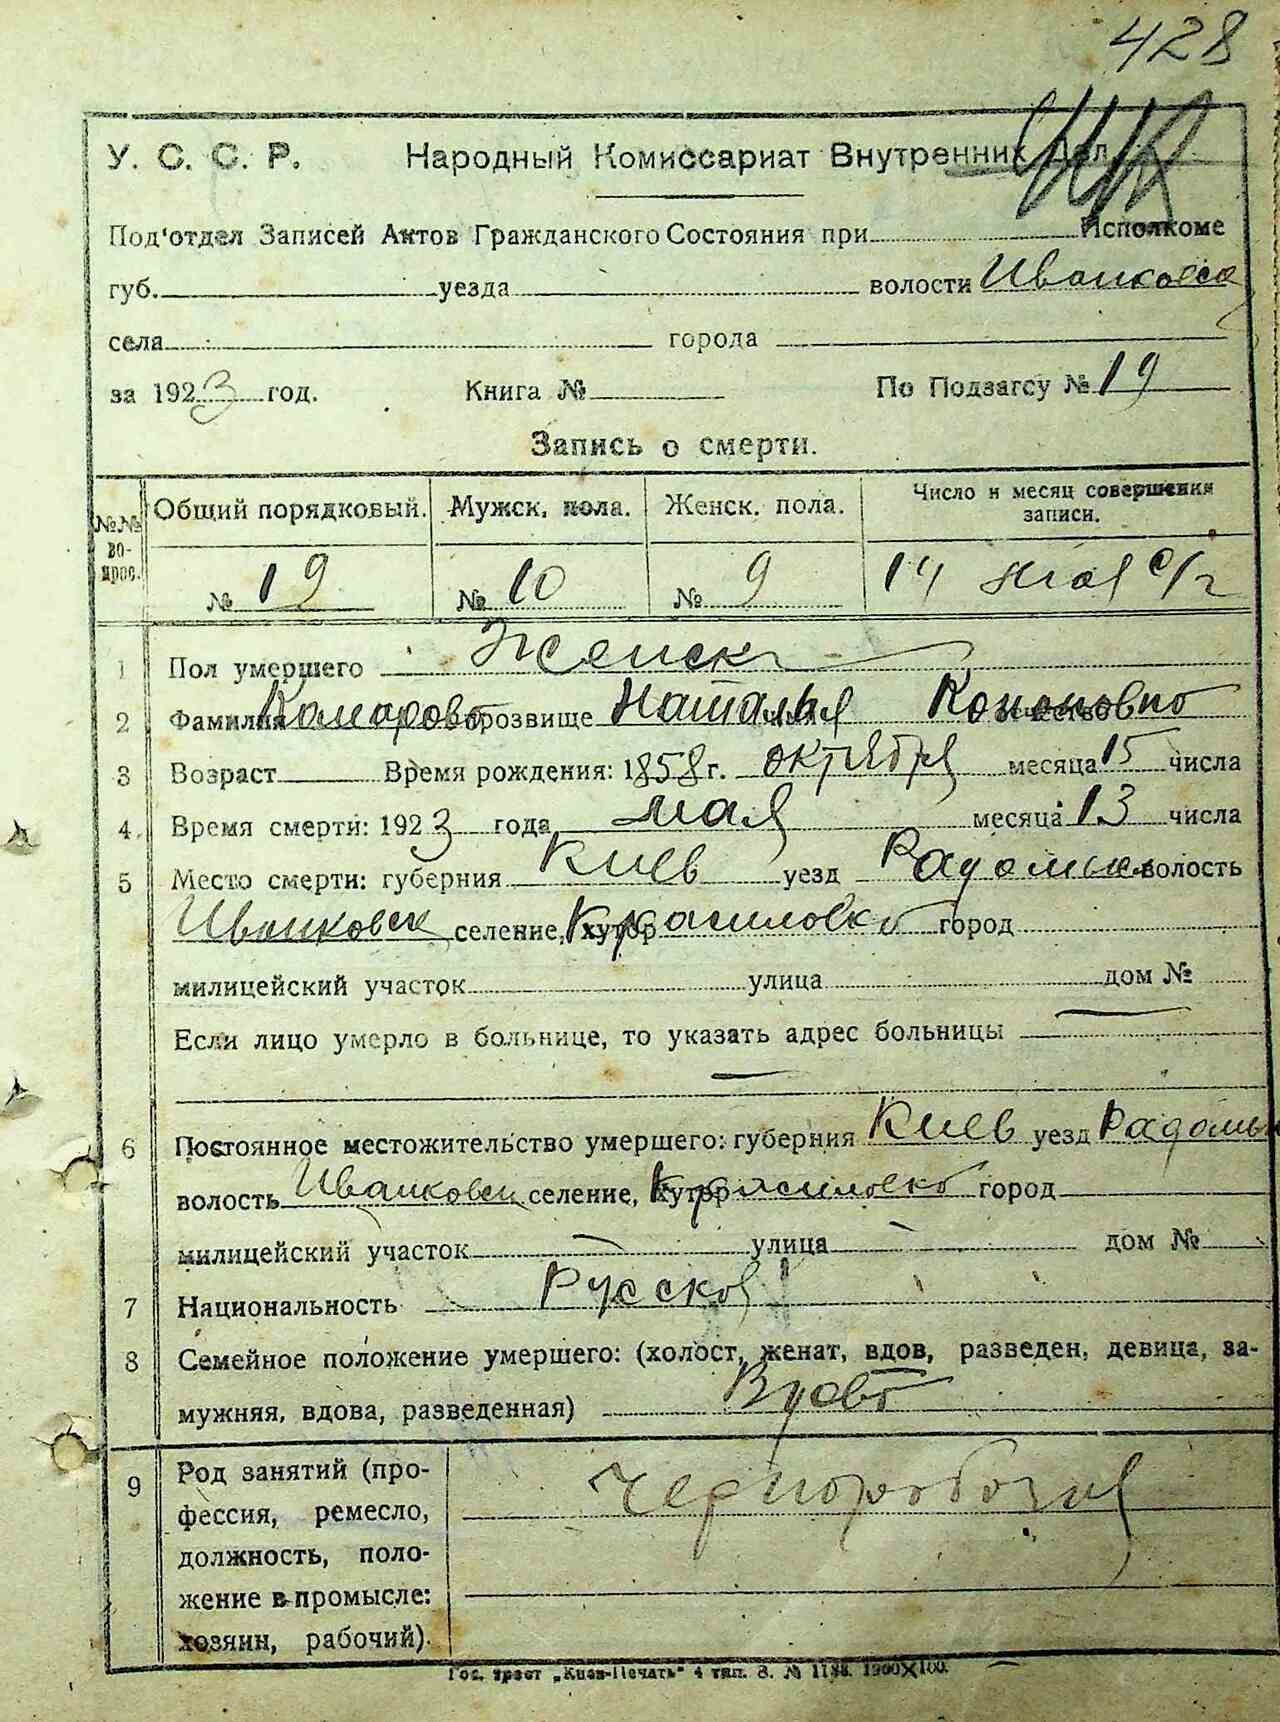 428
У. С. С. Р. Народный Комиссариат Внутренних Дел
Под'отдел Записей Актов Гражданского Состояния при Исполкоме
губ. уезда волости Иванковск
села города
за 1923 год. Книга № По Подзагсу № 19
Запись о смерти.
№№ во-прос. Общий порядковый. Мужск. пола. Женск. пола. Число и месяц совершения записи.
№ 19 № 10 № 9 14 мая с/г
1 Пол умершего Женск
2 Фамилия Комарова прозвище Наталья Отчество Кононовно
3 Возраст Время рождения: 1858 г. октября месяца 15 числа
4. Время смерти: 1923 года мая месяца 13 числа
5 Место смерти: губерния Киев уезд Радомысл волость
Иванковск селение, хутор Красиловко город
милицейский участок улица дом №
Если лицо умерло в больнице, то указать адрес больницы —
—
6 Постоянное местожительство умершего: губерния Киев уезд Радомы
волость Иванковск селение, хутор Красиловко город
милицейский участок — улица — дом №
7 Национальность Русская
8 Семейное положение умершего: (холост, женат, вдов, разведен, девица, за-
мужняя, вдова, разведенная) Вдова
9 Род занятий (про-
фессия, ремесло,
должность, поло-
жение в промысле:
хозяин, рабочий).
Чернорабочая
Гос. трест „Киев-Печать" 4 тип. З. № 1188. 1900×100.